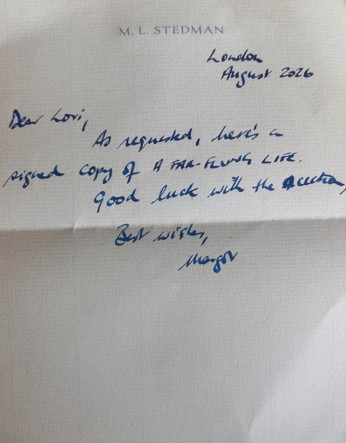 M. L. STEDMAN
London
August 2026
Dear Lori,
As requested, here's a
signed copy of A FAR-FLUNG LIFE.
Good luck with the auction,
Best wishes,
Margot